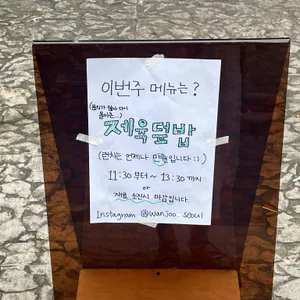 이번주 메뉴는?
돌아온...)
제육덮밥
(런치는 언제나 만원입니다 :))
11:30 부터 ~ 13:30 까지
or
재료 소진시 마감입니다.
Instagram @wanjoo_seoul